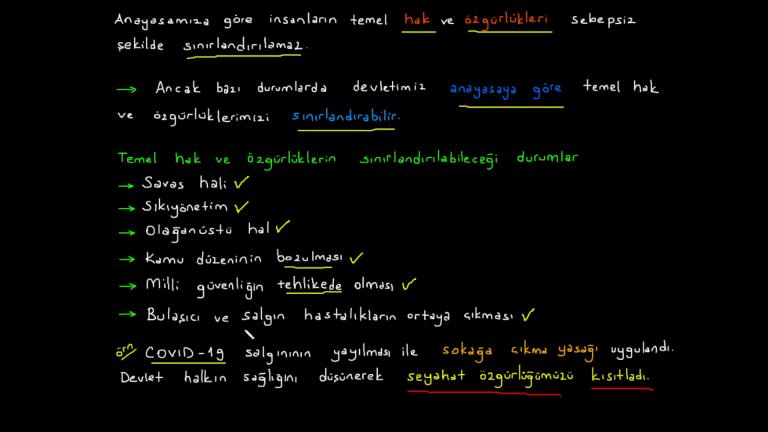 Anayasamıza göre insanların temel hak ve özgürlükleri sebepsiz
şekilde sınırlandırılamaz.
→ Ancak bazı durumlarda devletimiz anayasaya göre temel hak
ve özgürlüklerimizi sınırlandırabilir.
Temel hak ve özgürlüklerin sınırlandırılabileceği durumlar
→ Savaş hali ✓
→ Sıkıyönetim ✓
→ Olağanüstü hal ✓
→ Kamu düzeninin bozulması ✓
→ Milli güvenliğin tehlikede olması ✓
→ Bulaşıcı ve salgın hastalıkların ortaya çıkması ✓
örn/ COVID-19 salgınının yayılması ile sokağa çıkma yasağı uygulandı.
Devlet halkın sağlığını düşünerek seyahat özgürlüğümüzü kısıtladı.